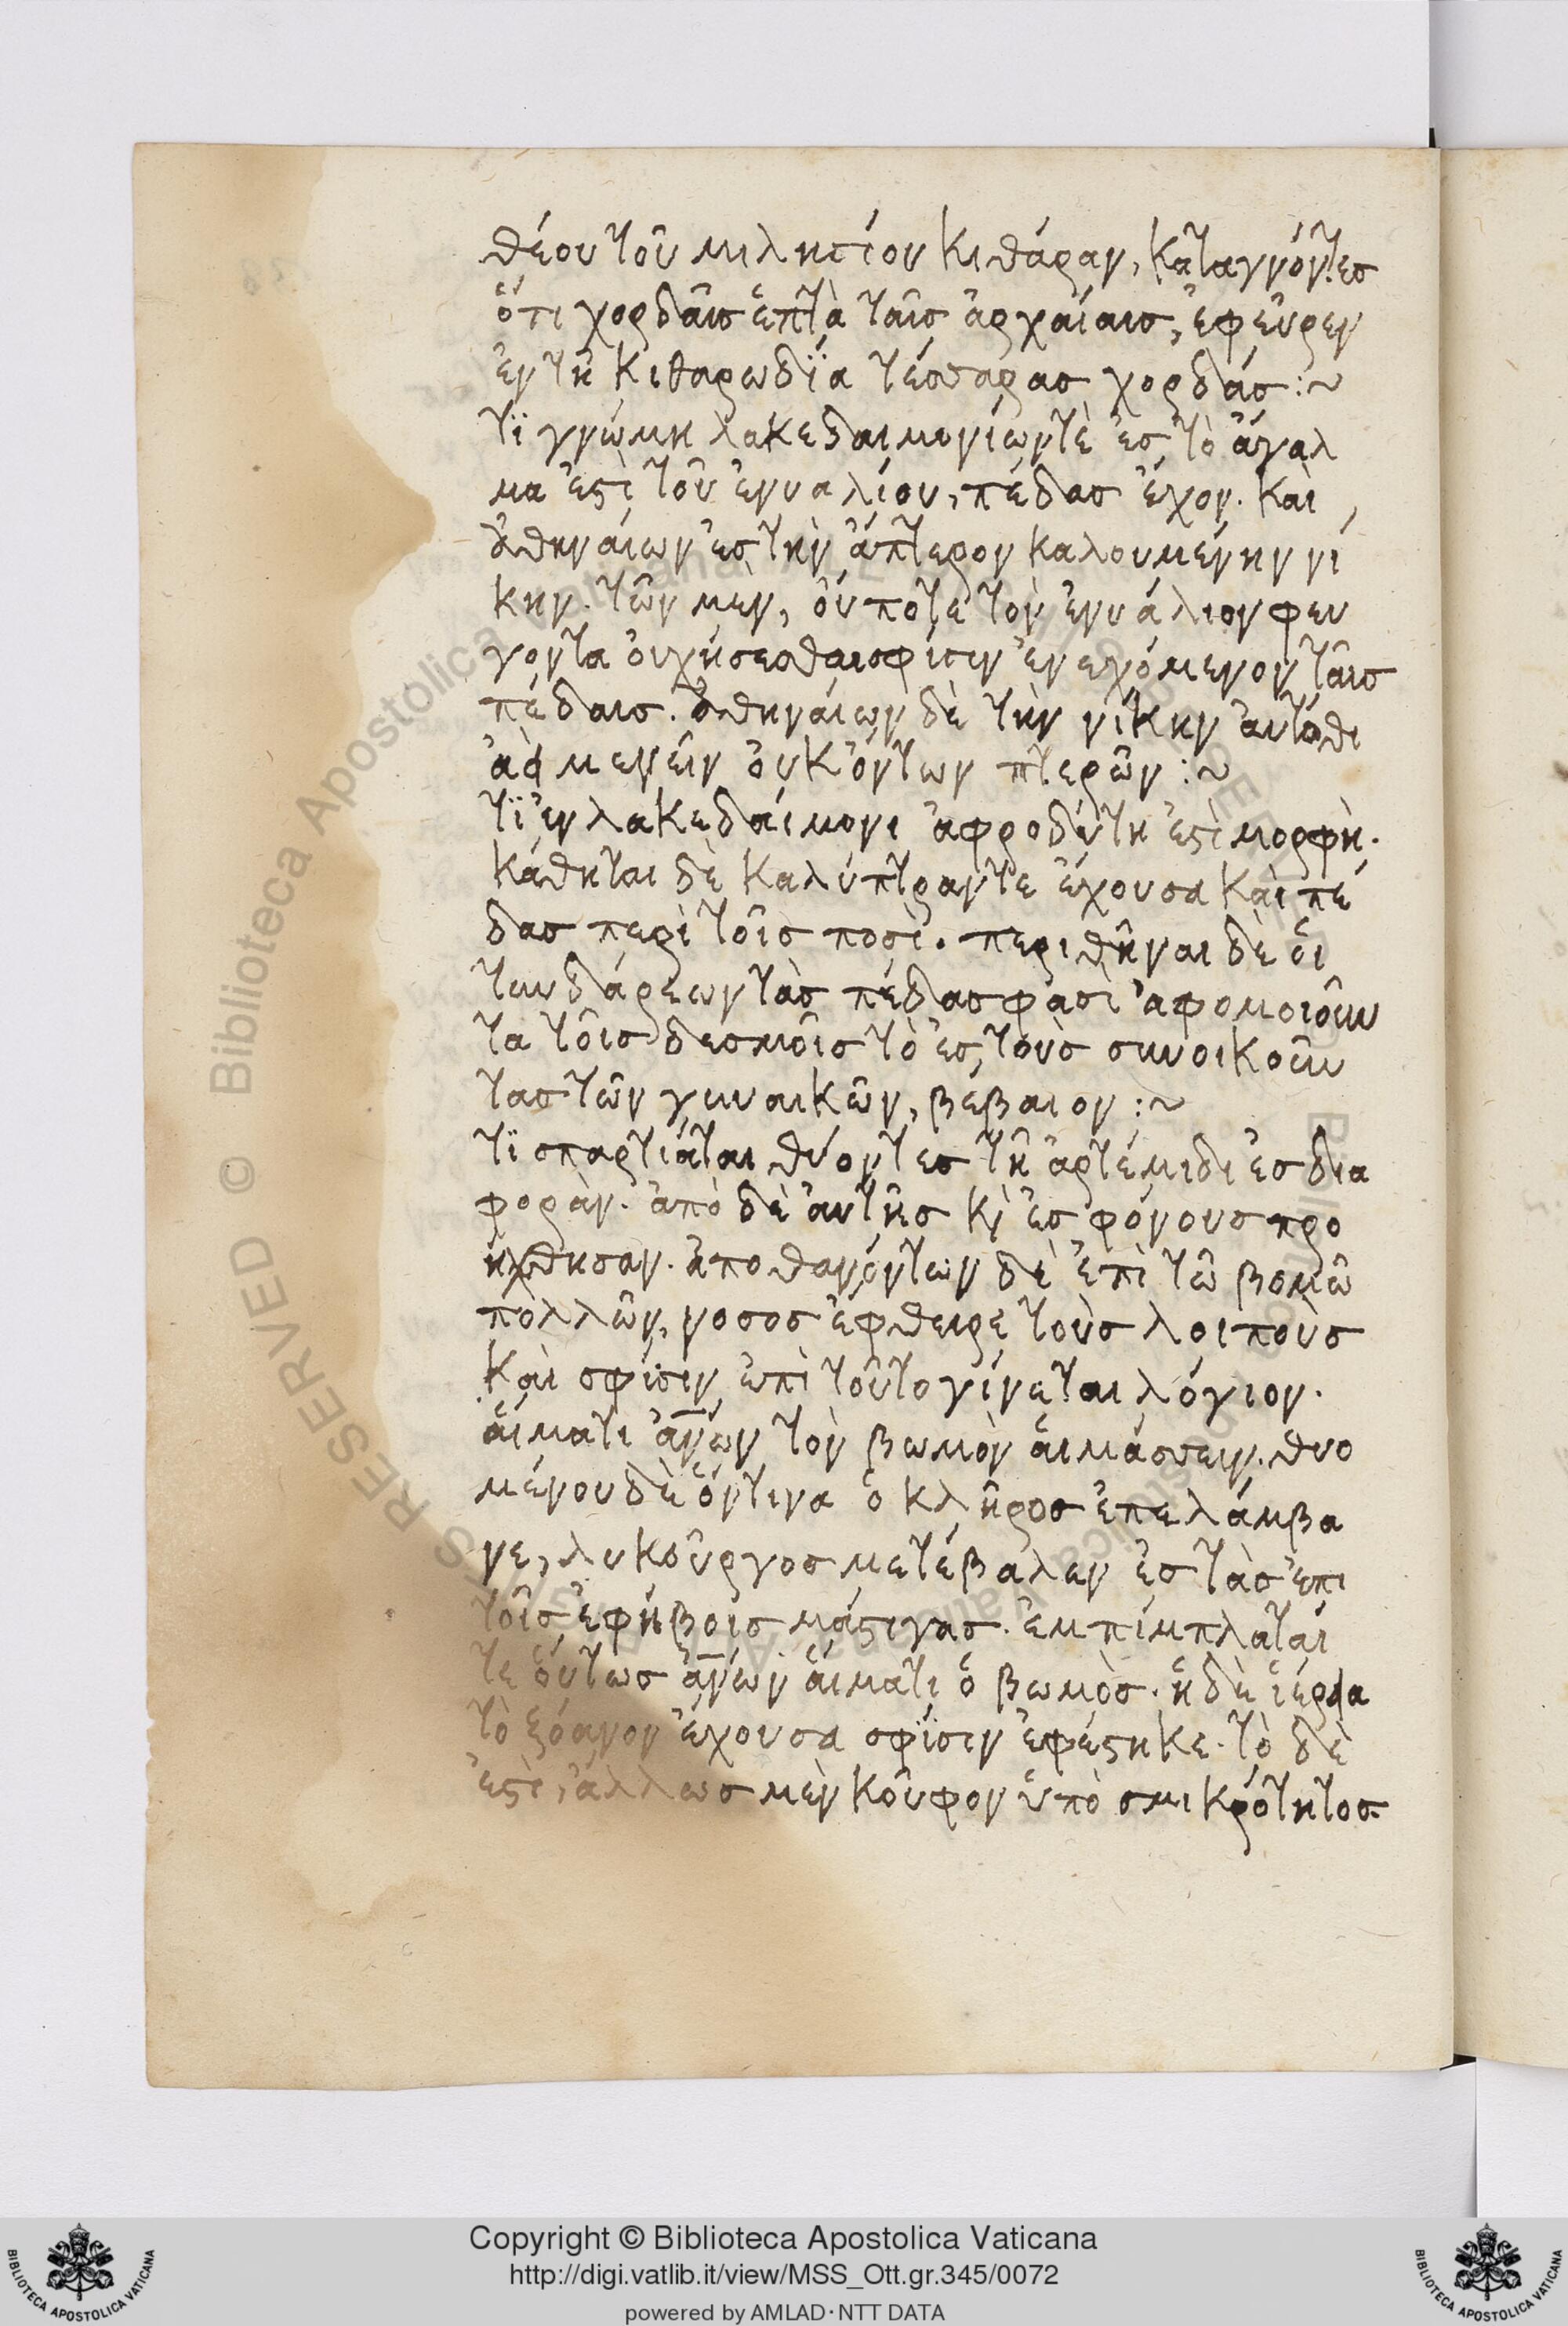 θέου τοῦ μιλησίου κιθάραν, καταγνόντες
ὅτι χορδαῖς ἑπτὰ ταῖς ἀρχαίαις, ἐφεῦρεν
ἐν τῆ κιθαρωδΐα τέσσαρας χορδάς :~
τΐ γνώμη λακεδαιμονίων τὲ ἐς τὸ ἄγαλ
μα ἐστὶ τοῦ ἐνυαλίου, πέδας ἔχον. καὶ
ἀθηναίων ἐς τὴν ἄπτερον καλουμένην νί
κην. τῶν μὲν, οὔποτε τὸν ἐνυάλιον φεύ
γοντα οἰχήσεσθαι σφίσιν ἐνεχόμενον ταῖς
πέδαις. ἀθηναίων δὲ τὴν νίκην αὐτόθι
ἀεὶ μενεῖν οὐκ ὄντων πτερῶν :~
τΐ ἐν λακεδαίμονι ἀφροδίτη ἐστὶ μορφὴ.
κάθηται δὲ καλύπτραν τε ἔχουσα καὶ πέ
δας περὶ τοῖς ποσὶ. περιθῆναι δὲ οἱ
τυνδάρεων τὰς πέδας φασὶ ἀφομοιοῦν
τα τοῖς δεσμοῖς τὸ ἐς τοὺς συνοικοῦν
τας τῶν γυναικῶν, βέβαιον :~
τΐ σπαρτιάται θύοντες τῆ ἀρτέμιδι ἐς δια
φορὰν. ἀπὸ δὲ αὐτῆς κὶ ἐς φόνους προ
ήχθησαν. ἀποθανόντων δὲ ἐπὶ τῶ βομῶ
πολλῶν, νοσος ἔφθειρε τοὺς λοιποὺς
καὶ σφίσιν ἐπὶ τοῦτο γίνεται λόγιον.
αἵματι ἀνων τὸν βωμὸν αἱμάσσειν. θυο
μένου δὲ ὅντινα ὁ κλῆρος ἐπελάμβα
νε, λυκοῦργος μετέβαλεν ἐς τὰς ἐπι
τοῖς ἐφήβοις μάστιγας. ἐμπίμπλαταί
τε οὕτως ἀνων αἵματι ὁ βωμὸς. ἡ δὲ ἱέρεια
τὸ ξόανον ἔχουσα σφίσιν ἐφέστηκε. τὸ δὲ
ἐστὶ, ἄλλως μὲν κοῦφον ὑπὸ σμικρότητος.
Copyright © Biblioteca Apostolica Vaticana
http://digi.vatlib.it/view/MSS_Ott.gr.345/0072
powered by AMLAD·NTT DATA